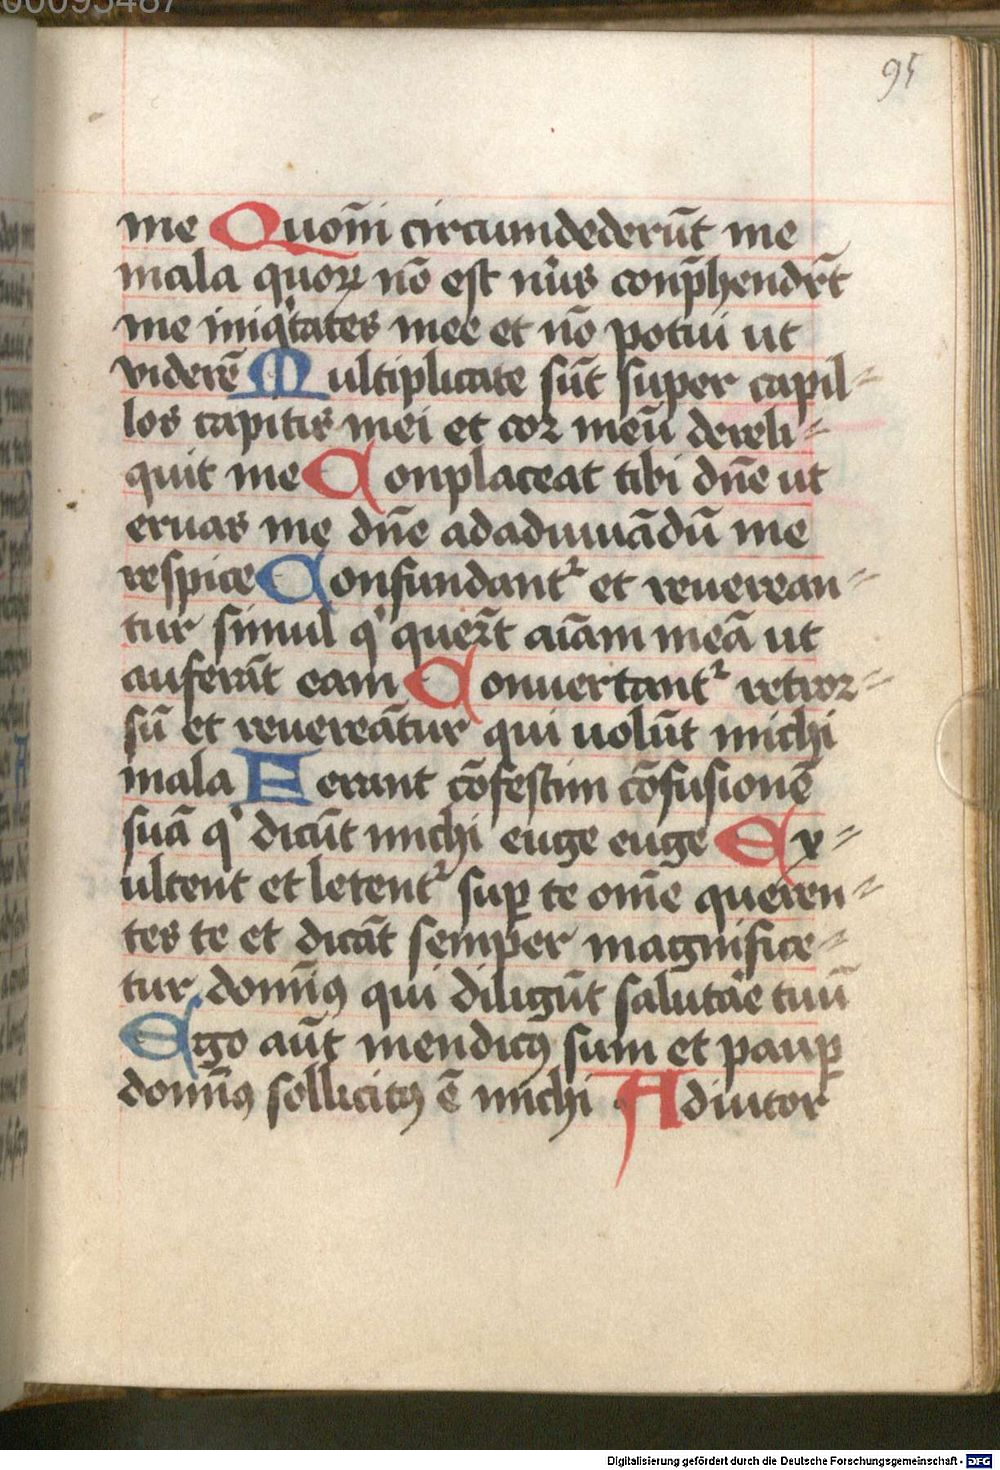 00095487
95
me Quom̄ circumdederūt me
mala quoꝝ nō est nūs conp̄hendert̄
me iniqͥtates mee et nō potui ut
viderē Multiplicate sūt super capil⸗
los capitis mei et coꝛ meū dereli⸗
quit me Conplaceat tibi dn̄e ut
eruas me dn̄e adadiuuādū me
respice Confundantᷣ et reuerean⸗
tur simul qͥ querūt aīam meā ut
auferāt eam Conuertantᷣ retroꝛ⸗
sū et reuereātur qui uolūt michi
mala Ferant cōfestim cōfusionē
suā qͥ dicūt michi euge euge Ex⸗
ultent et letentᷣ suꝑ te om̄e queren⸗
tes te et dicāt semper magnifice⸗
tur domīꝰ qui diligūt salutāe tuū
Ego aūt mendicꝰ sum et pauꝑ
domīꝰ sollicitꝰ ē michi Adiutor
Digitalisierung gefördert durch die Deutsche Forschungsgemeinschaft - DFG